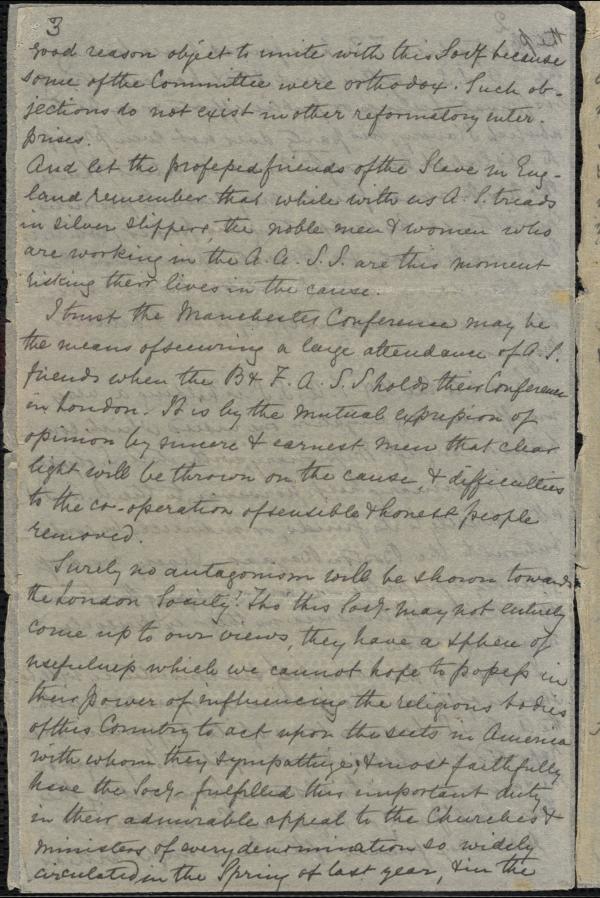 3
good reason object to unite with this Socy because
some of the Committee were orthodox. Such ob-
jections do not exist in other reformatory enter-
prises.
And let the professed friends of the Slave in Eng-
land remember that while with us A. S. treads
in silver slippers, the noble men & women who
are working in the A. A. S. S. are this moment
risking their lives in the cause.
I trust the Manchester Conference may be
the means of securing a large attendance of A. S.
friends when the B & F. A. S. S. holds their Conference
in London. It is by the mutual expression of
opinion by sincere & earnest men that clear
light will be thrown on the cause, & difficulties
to the co-operation of sensible & honest people
removed.
Surely no antagonism will be shown towards
the London Society! Tho' this Socy. may not entirely
come up to our views, they have a sphere of
usefulness which we cannot hope to possess in
their power of influencing the religious bodies
of this Country to act upon the sects in America
with whom they sympathize; & most faithfully
have the Socy. fulfilled this important duty
in their admirable appeal to the Churches &
ministers of every denomination so widely
circulated in the Spring of last year, & in the